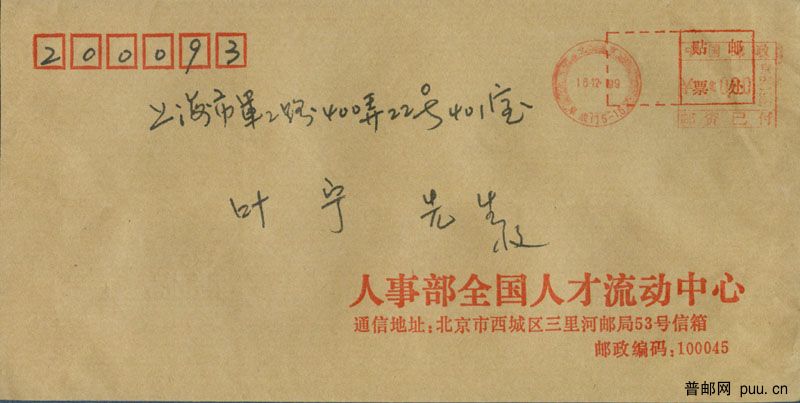 200093
贴 邮
票 处
上海市军工路400弄22号401室
叶宁 先生收
人事部全国人才流动中心
通信地址:北京市西城区三里河邮局53号信箱
邮政编码:100045
普邮网 puu.cn